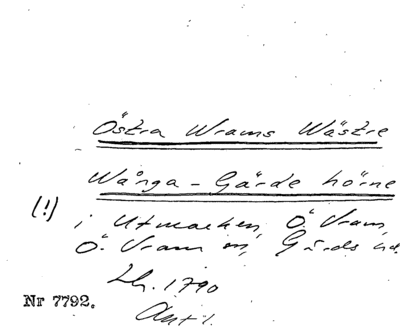 Östra Wrams Wästre
Wånga - Gärde hörne
(!) i Utmarken, Ö. Vram,
Ö. Vram sn, Gärds hd.
Lh. 1790
Akt 1.
Nr 7792.